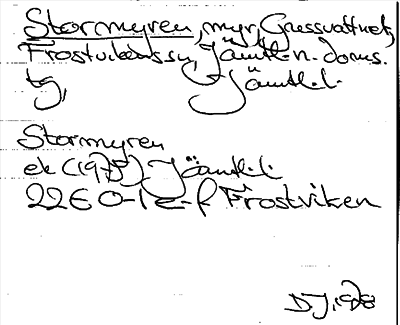 Stormyren, myr, Gussvattnet,
Frostvikens sn, Jämtl. n. doms.
tg, Jämtl. l.
Stormyren
ek (1975) Jämtl. l.
22E 0-1 e-f Frostviken
D J, 1978